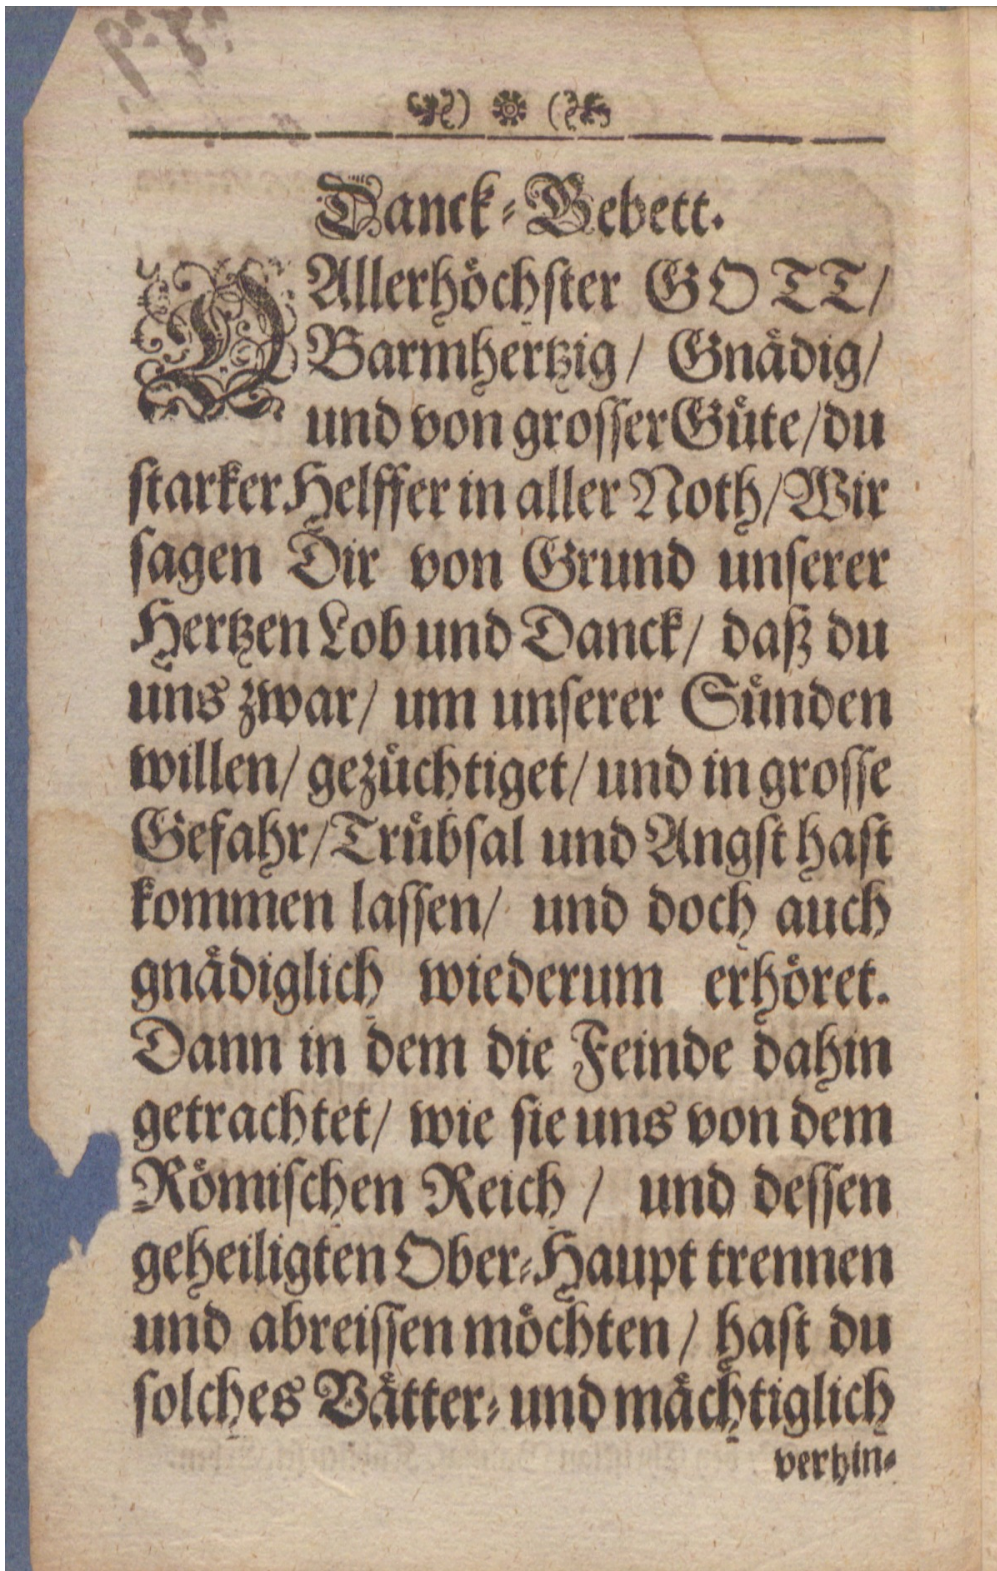 Danck-Gebett.
O Allerhöchster GOTT/
Barmhertzig/ Gnädig/
und von grosser Güte/ du
starker Helffer in aller Noth/ Wir
sagen Dir von Grund unserer
Hertzen Lob und Danck/ daß du
uns zwar/ um unserer Sünden
willen/ gezüchtiget/ und in grosse
Gefahr/ Trübsal und Angst hast
kommen lassen/ und doch auch
gnädiglich wiederum erhöret.
Dann in dem die Feinde dahin
getrachtet/ wie sie uns von dem
Römischen Reich/ und dessen
geheiligten Ober-Haupt trennen
und abreissen möchten/ hast du
solches Vätter- und mächtiglich
verhin-